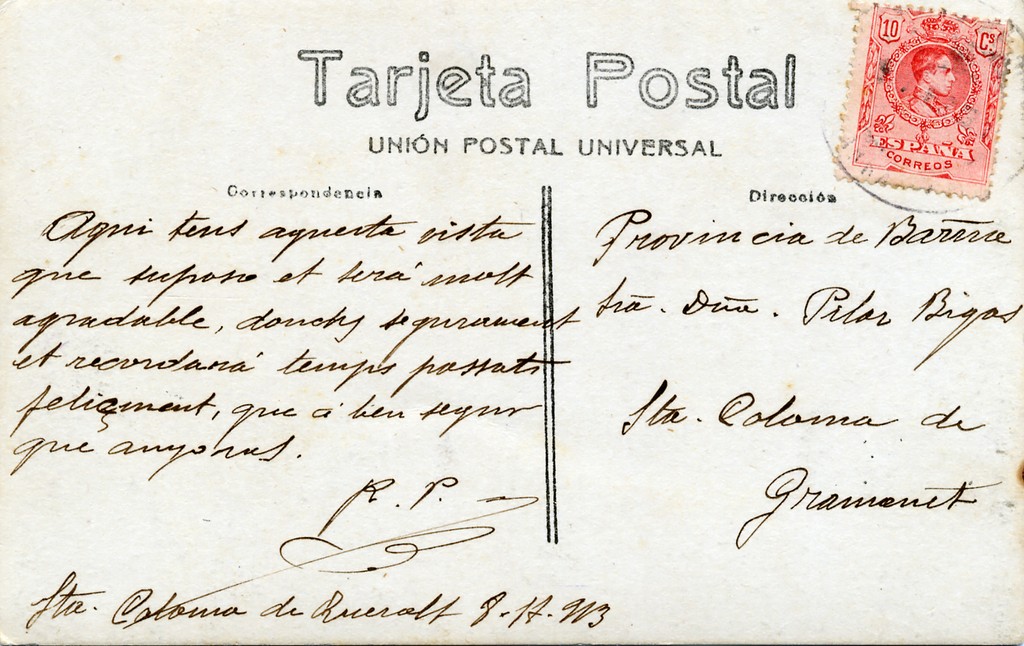 Tarjeta Postal
UNIÓN POSTAL UNIVERSAL
10 Cs.
ESPAÑA
CORREOS
Correspondencia
Aqui tens aquesta vista
que suposo et será molt
agradable, donchs segurament
et recordará temps passats
feliçment, que á ben segur
que anyoras.
R. P.
Sta. Coloma de Queralt 8-  -913
Dirección
Provincia de Barna
Sra. Dña. Pilar Bigas
Sta. Coloma de
Gramanet